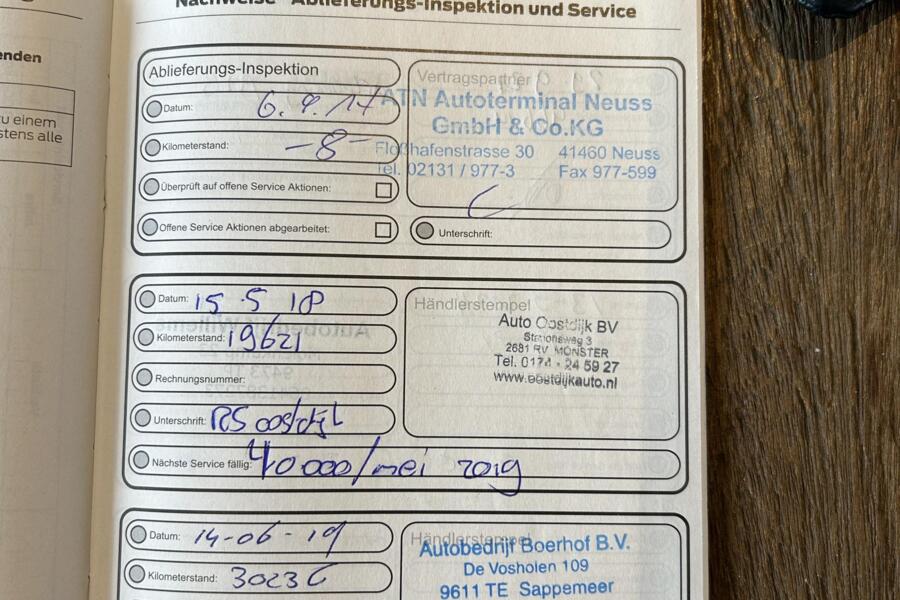 Nachweise Ablieferungs-Inspektion und Service
enden
zu einem
stens alle
Ablieferungs-Inspektion
Datum: 6.9.17
Kilometerstand: -8-
Überprüft auf offene Service Aktionen:
Offene Service Aktionen abgearbeitet:
Vertragspartner
ATN Autoterminal Neuss
GmbH & Co.KG
Floßhafenstrasse 30 41460 Neuss
Tel. 02131 / 977-3 Fax 977-599
Unterschrift:
Datum: 15 5 18
Kilometerstand: 19621
Rechnungsnummer:
Unterschrift: RS oostdijk
Nächste Service fällig: 40000/mei 2019
Händlerstempel
Auto Oostdijk BV
Stationsweg 3
2681 RV MONSTER
Tel. 0174 - 24 59 27
www.oostdijkauto.nl
Datum: 14-06-19
Kilometerstand: 30236
Händlerstempel
Autobedrijf Boerhof B.V.
De Vosholen 109
9611 TE Sappemeer